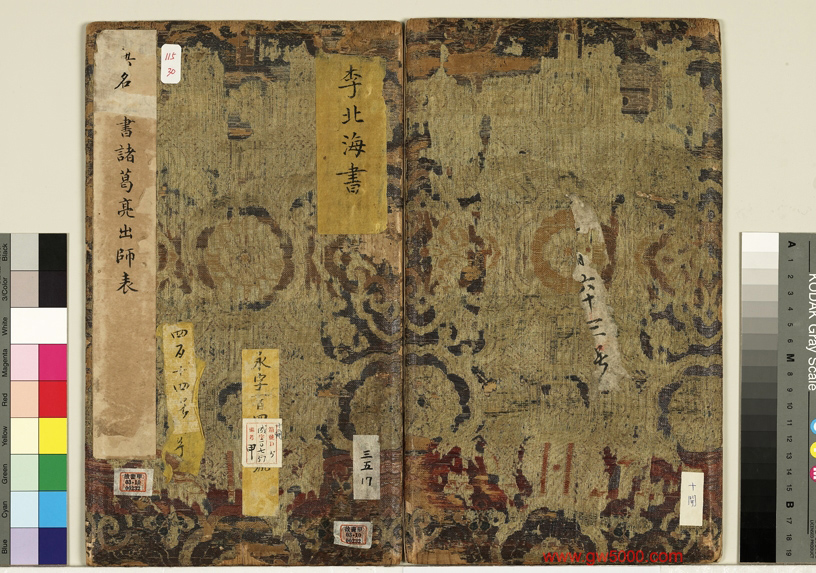 名
書諸葛亮出師表
115
30
李北海書
四百
永字一百四
甲
三五17
故書畢
03-10
00232
六十三号
十開
www.gw5000.com
Black
3/Color
White
Magenta
Red
Yellow
Green
Cyan
Blue
KODAK Gray Scale
A 1 2 3 4 5 6 M 8 9 10 11 12 13 14 15 B 17 18 19